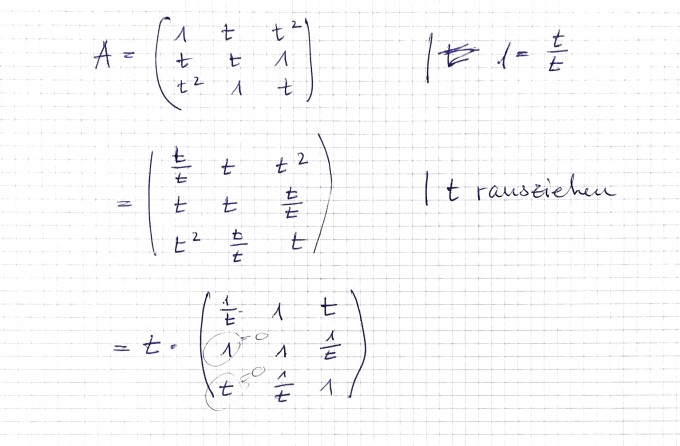 A = ( 1 t t² ; t t 1 ; t² 1 t ) | 1 = t/t
= ( t/t t t² ; t t t/t ; t² t/t t ) | t rausziehen
= t · ( 1/t 1 t ; 1 =0 1 1/t ; t =0 1/t 1 )